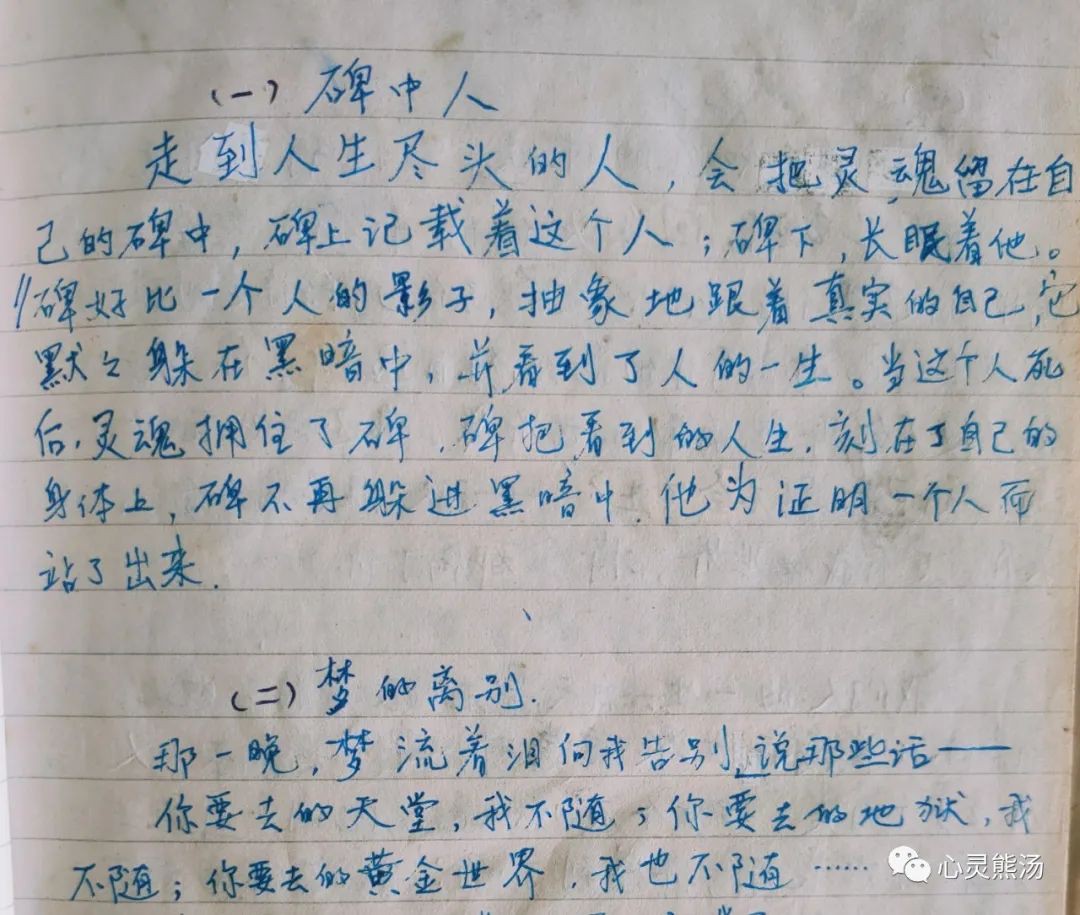 （一）碑中人
走到人生尽头的人，会把灵魂留在自
己的碑中，碑上记载着这个人；碑下，长眠着他。
碑好比一个人的影子，抽象地跟着真实的自己，它
默々躲在黑暗中，并看到了人的一生。当这个人死
后，灵魂拥住了碑，碑把看到的人生，刻在了自己的
身体上，碑不再躲进黑暗中，他为证明一个人而
站了出来.
（二）梦的离别.
那一晚，梦流着泪向我告别，说那些话——
你要去的天堂，我不随；你要去的地狱，我
不随；你要去的黄金世界，我也不随……
心灵熊汤